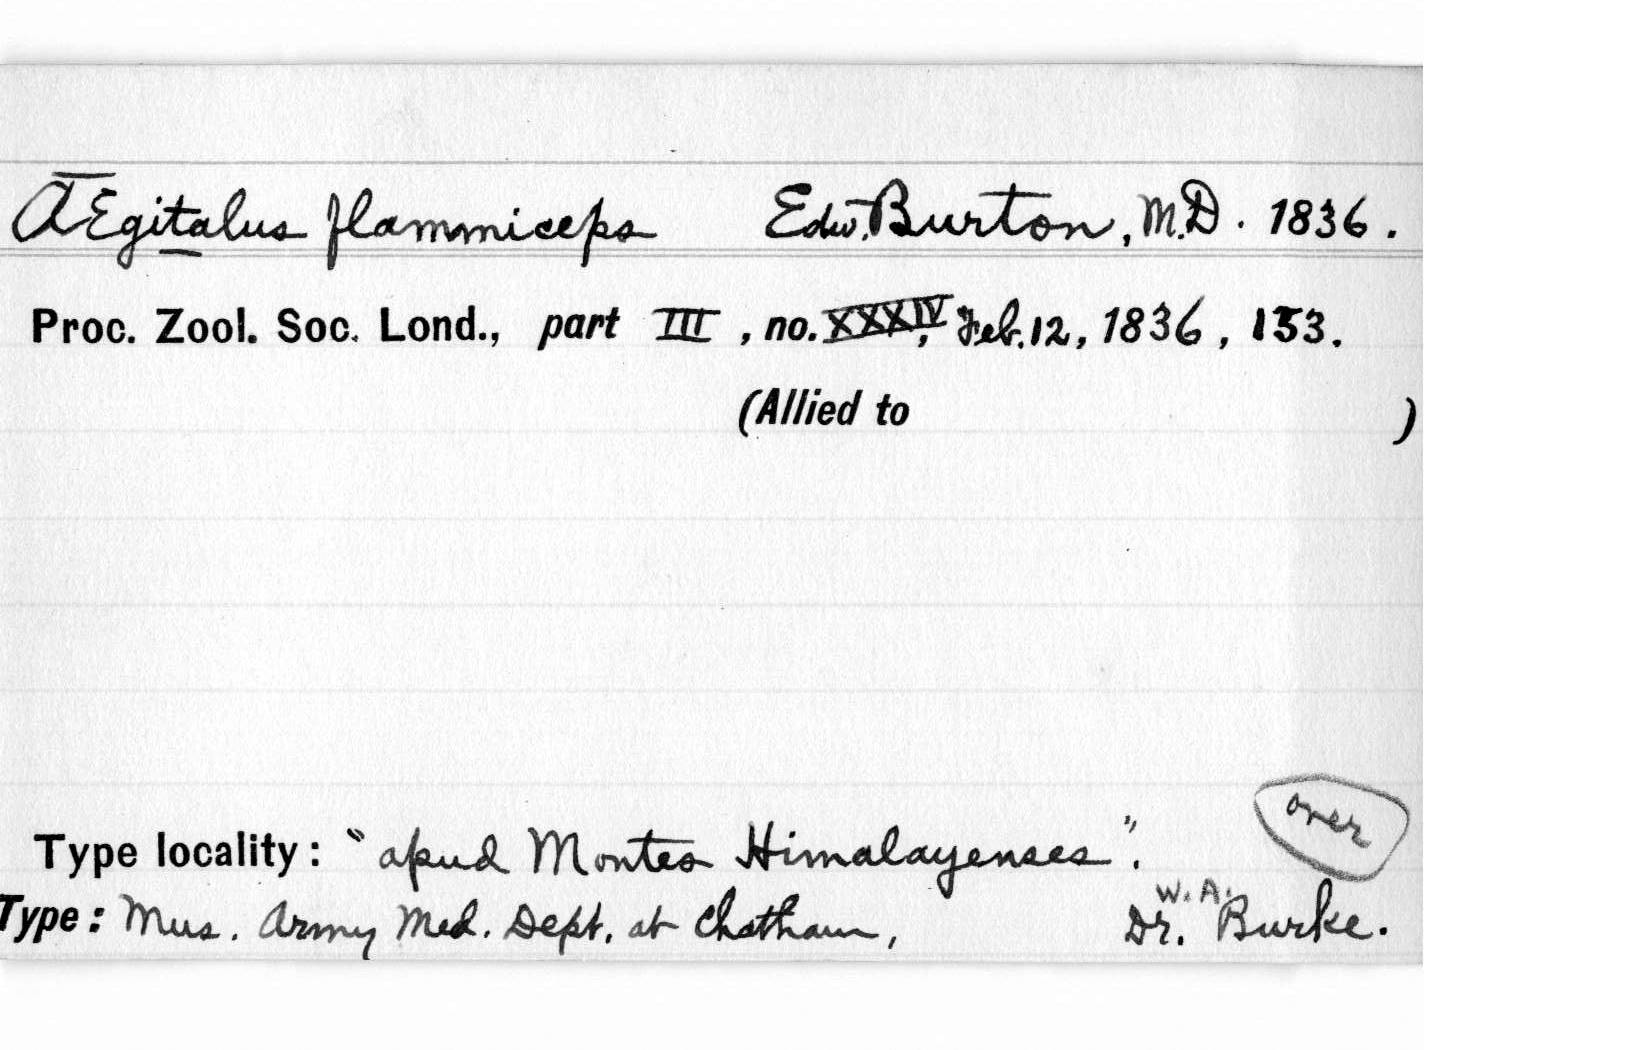 Ægitalus flammiceps Edw. Burton, M.D. 1836.
Proc. Zool. Soc. Lond., part III, no. XXXIV, Feb. 12, 1836, 153.
(Allied to )
over
Type locality: "apud Montes Himalayenses".
W. A.
Type: Mus. Army Med. Dept. at Chatham, Dr. Burke.